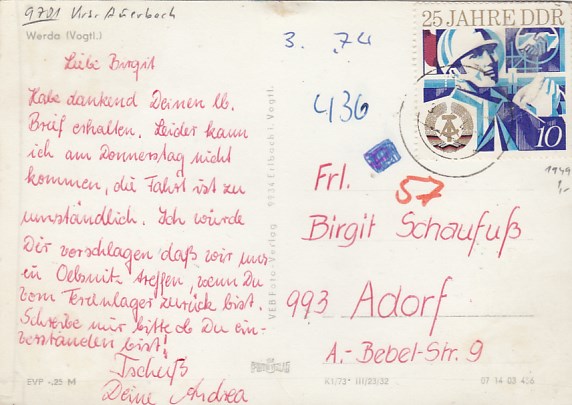 9701 Krs. Auerbach
Werda (Vogtl.)
Liebe Birgit
Habe dankend Deinen lb.
Brief erhalten. Leider kann
ich am Donnerstag nicht
kommen, die Fahrt ist zu
umständlich. Ich würde
Dir vorschlagen daß wir uns
in Oelsnitz treffen, wenn Du
vom Ferienlager zurück bist.
Schreibe mir bitte ob Du ein-
verstanden bist!
Tschüß
Deine Andrea
EVP -.25 M
VEB Foto-Verlag 9934 Erlbach i. Vogtl.
3. 74
436
25 JAHRE DDR
10
1949
57
Frl.
Birgit Schaufuß
993 Adorf
A.-Bebel-Str. 9
K1/73* III/23/32
07 14 03 456